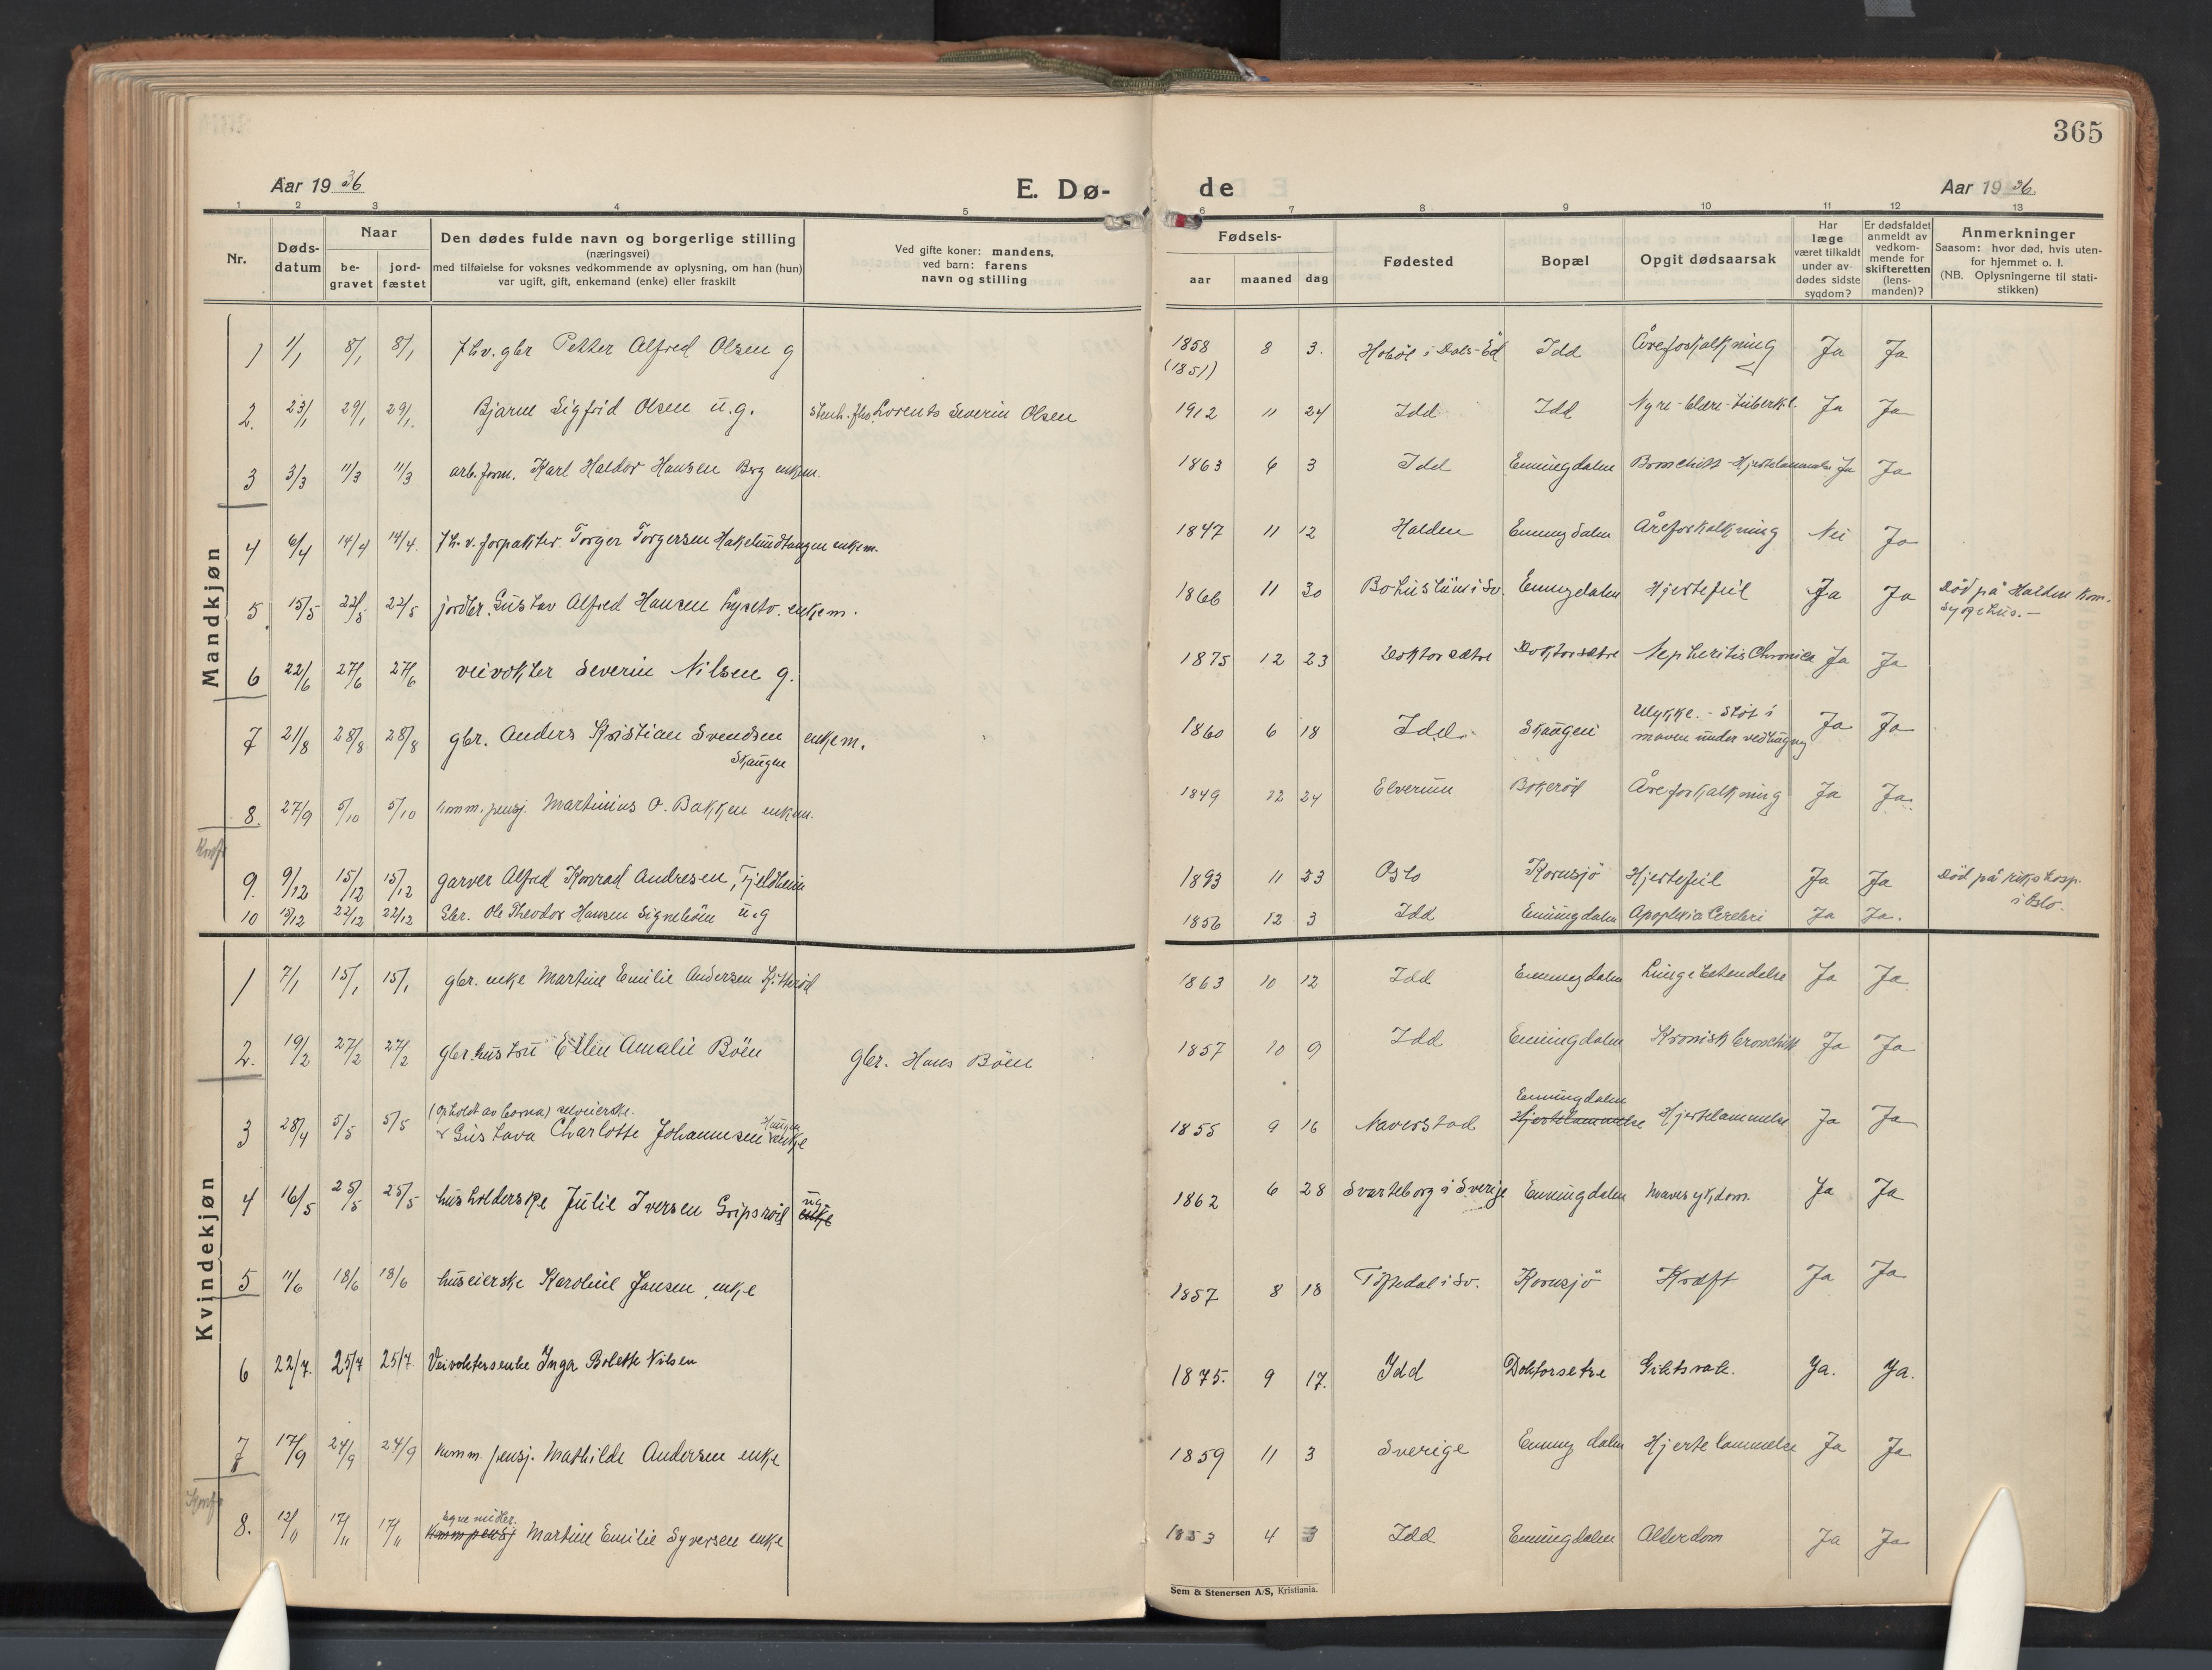 365
Aar 1936
E. Dø-
de
Aar 1936.
1 2 3 4 5 6 7 8 9 10 11 12 13
Nr.
Døds-
datum
Naar
be-
gravet
jord-
fæstet
Den dødes fulde navn og borgerlige stilling
(næringsvei)
med tilføielse for voksnes vedkommende av oplysning, om han (hun)
var ugift, gift, enkemand (enke) eller fraskilt
Ved gifte koner: mandens,
ved barn: farens
navn og stilling
Fødsels-
aar maaned dag
Fødested
Bopæl
Opgit dødsaarsak
Har
læge
været tilkaldt
under av-
dødes sidste
sygdom?
Er dødsfaldet
anmeldt av
vedkom-
mende for
skifteretten
(lens-
manden)?
Anmerkninger
Saasom: hvor død, hvis uten-
for hjemmet o. l.
(NB. Oplysningerne til stati-
stikken)
Mandkjøn
1 1/1 8/1 8/1 fhv. gbr Petter Alfred Olsen g 1858 8 3. Hoböl i Dals-Ed Idd Åreforkalkning Ja Ja
(1851)
2. 23/1 29/1 29/1. Bjarne Sigfrid Olsen u.g. stenh. fhv. Lorents Severin Olsen 1912 11 24 Idd Idd Nyre-blære-tuberkl. Ja Ja
3 3/3 11/3 11/3 arb.form. Karl Haldor Hansen Berg enkem. 1863 6 3 Idd Enningdalen Bronchitt-Hjertelammelse Ja Ja
4 6/4 14/4 14/4. fh.v. forpakter Torger Torgersen Hakelundtangen enkem. 1847 11 12 Halden Enningdalen Åreforkalkning Nei Ja
5. 15/5 22/5 22/5 jordbr. Gustav Alfred Hansen enkem. 1866 11 30 Bohuslän i Sv. Enningdalen Hjertefeil Ja Ja Död på Halden kom.
sykehus.-
6 22/6 27/6 27/6 veivokter Severin Nilsen g. 1875 12 23 Doktorsætre Doktorsætre Nepheritis Chronica Ja Ja
7 21/8 28/8 28/8 gbr. Anders Kristian Svendsen enkem. 1860 6 18 Idd. Skaugen Ulykke.- Støt i
maven under vedhugng Ja Ja
Skaugen
8. 27/9 5/10 5/10 komm.pensj. Martinius O. Bakken enkem. 1849 12 24 Elverum Bokerød Åreforkalkning Ja Ja.
9. 9/12 15/12 15/12 garver Alfred Konrad Andresen, Fjeldheim 1893 11 23 Oslo Kornsjö Hjertefeil Ja Ja Död på rikshosp.
i Oslo.
10 15/12 22/12 22/12 Gbr. Ole Theodor Hansen Signebøen u.g 1856 12 3 Idd Enningdalen Apoplexia Cerebri Ja Ja.
Kvindekjøn
1 7/1 15/1 15/1 gbr. enke Martine Emilie Andersen Kitterød 1863 10 12 Idd Enningdalen Lungebetendelse Ja Ja
2. 19/2 27/2 27/2 gbr.hustru Ellen Amalie Böen gbr. Hans Böen 1857 10 9 Idd Enningdalen Kronisk bronchitt Ja Ja
3 28/4 5/5 5/5 (opholdt av barna) selveierske.
Gustava Charlotte Johannesen Haugen enke 1855 9 16 Naverstad Enningdalen
Hjertelammelse Hjertelammelse Ja Ja
4 16/5 25/5 25/5 husholderske Julie Iversen Gripsrød u.g.
enke 1862 6 28 Svarteborg i Sverige Enningdalen Mavesykdom. Ja Ja
5 11/6 18/6 18/6 huseierske Karoline Jansen, enke 1857 8 18 Töftedal i Sv. Kornsjö Kræft Ja Ja
6 22/7. 25/7 25/7 Veivokterenke Inga Bolette Nilsen 1875. 9 17. Idd Doktorsetre Ja. Ja.
7 17/9 24/9 24/9 komm.pensj. Mathilde Andersen enke 1859 11 3 Sverige Enningdalen Hjertelammelse Ja Ja
8. 12/11 17/11 17/11 egne midler.
Kommpensj Martine Emilie Syversen enke 1853 4 3 Idd Enningdalen Alderdom Ja Ja
Sem & Stenersen A/S, Kristiania.